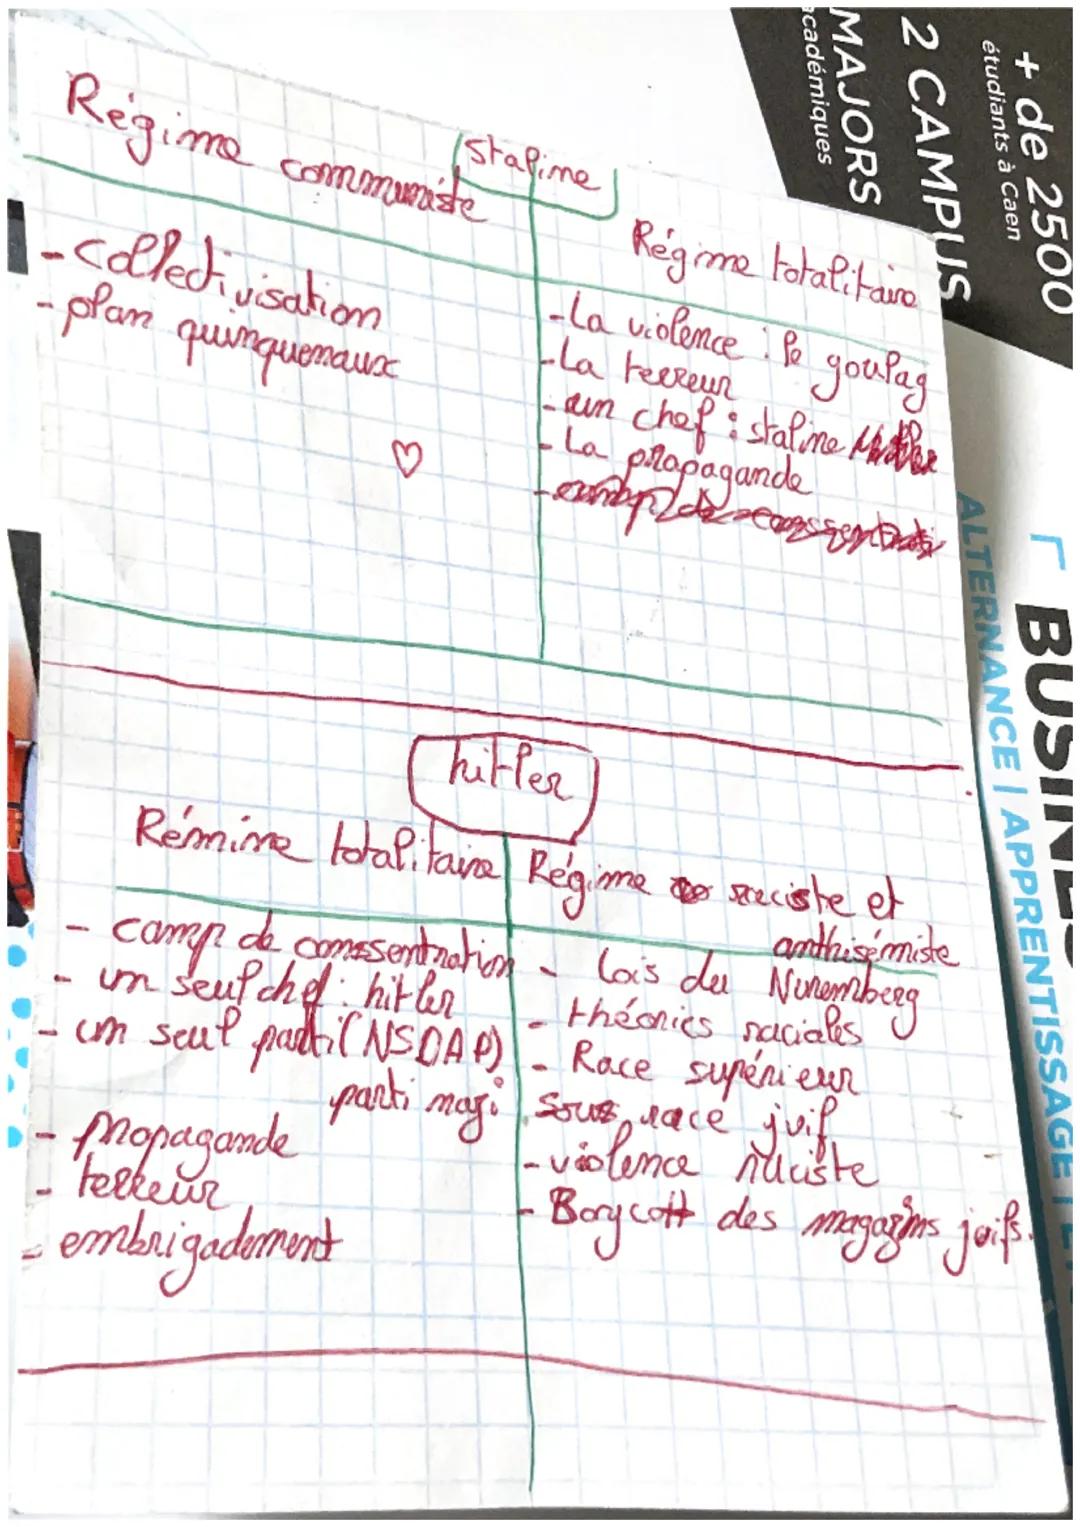 Régime communiste
Staline
Régime totalitaire
- Collectivisation
- plan quinquenaux
- La violence : le goulag
- La terreur
- un chef : staline
- La propagande
hitler
Rémime totalitaire
Régime raciste et
anthisémiste
- camp de conssentnation
- un seul chef : hitler
- un seul parti (NSDAP)
parti nazi
- propagande
- terreur
- embrigadement
- Lois du Nuremberg
- théories raciales
- Race supérieur
sous race juif
- violence raciste
- Borycott des magazins juifs.
+ de 2500
étudiants à Caen
2 CAMPUS
MAJORS
académiques
ALTERNANCE | APPRENTISSAGE |